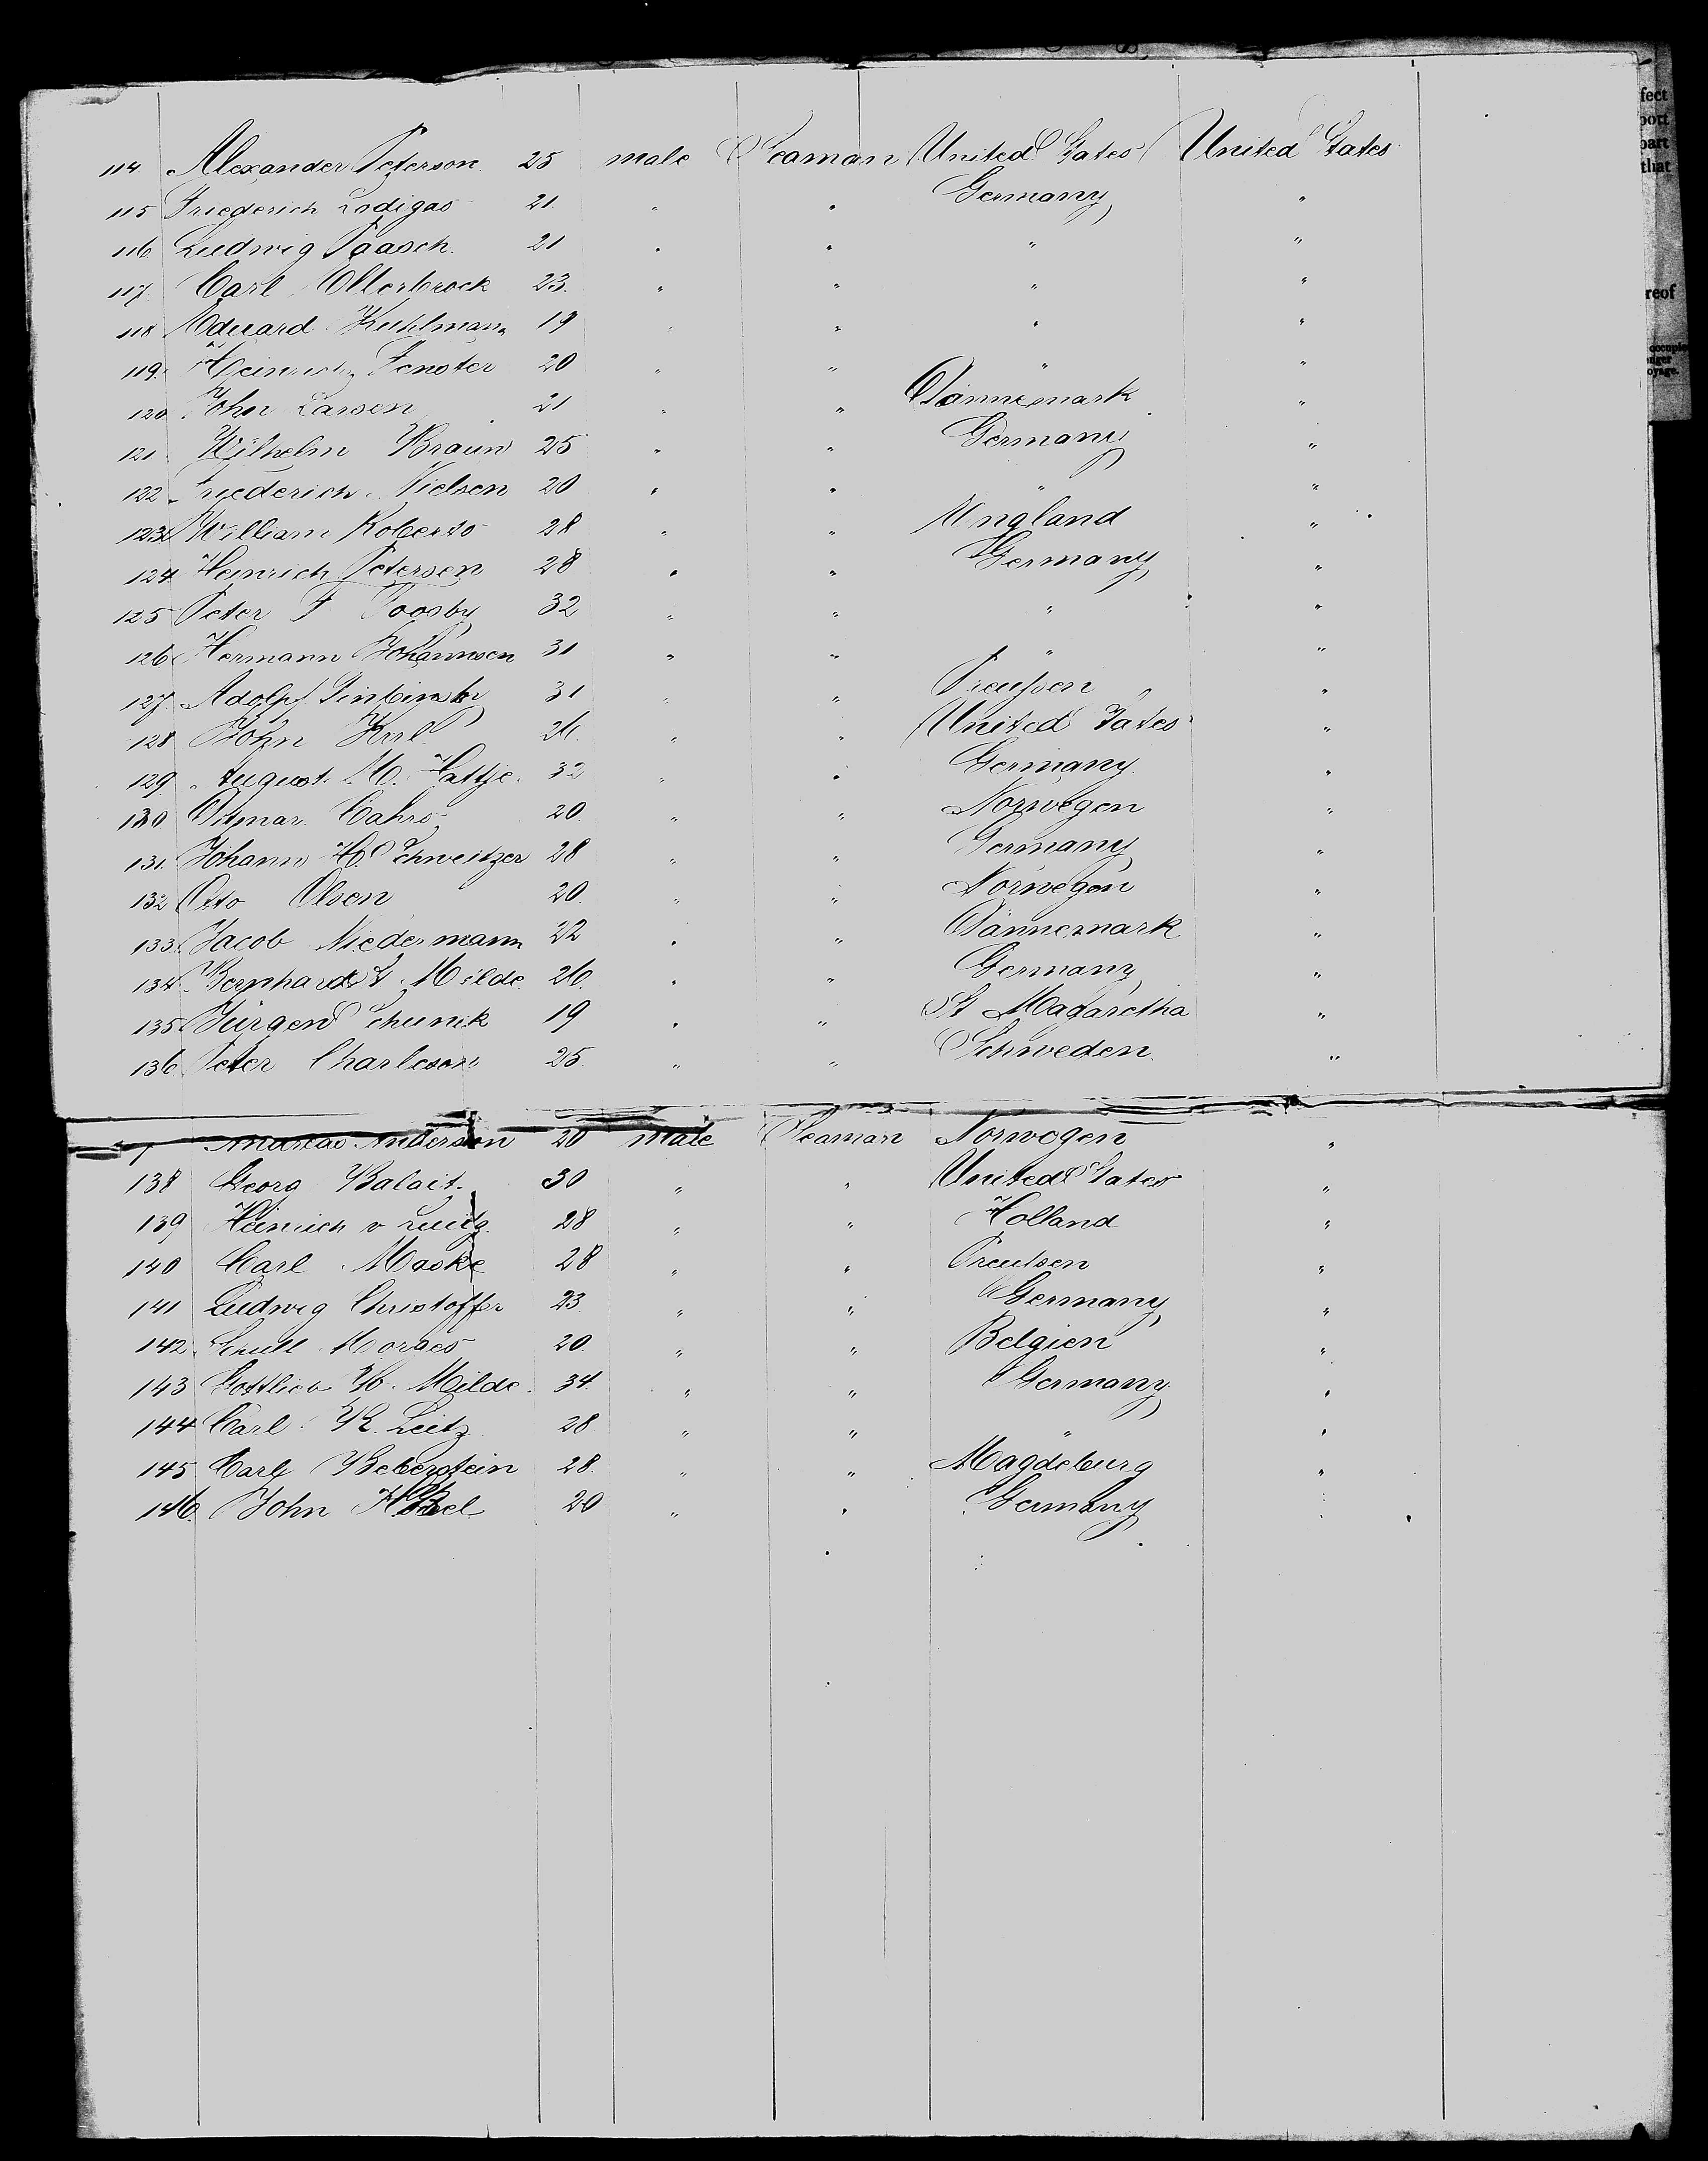 fect
port
part
that
reof
occupie
nger
oyage.
114 Alexander Peterson. 25 male Seaman United States United States
115 Friederich Lodigas 21. " " Germany "
116 Ludwig Paasch. 21 " " " "
117. Carl Ellerbrock 23. " " " "
118 Eduard Kuhlmann 19 " " " "
119. Heinrich Fenster 20 " " " "
120 John Larsen 21 " " Dännemark "
121 Wilhelm Braun 25 " " Germany "
122 Friederich Nielsen 20 " " " "
123 William Roberts 28 " " England "
124 Heinrich Petersen 28 " " Germany "
125 Peter F Toosby 32 " " " "
126 Hermann Johannsen 31 " " " "
127. Adolf 31 " " Preußen "
128 John 26. " " United States "
129. August M. Hattje. 32 " " Germany "
130 Otmar Cahrs 20. " " Norwegen "
131. Johann H. Schweitzer 28 " " Germany "
132 Otto Olsen 20. " " Norwegen "
133. Jacob Niedermann 22 " " Dännemark "
134 Bernhardt Milde. 26. " " Germany "
135 Jürgen Schunk 19 " " St Magaretha "
136. Peter Charleson 25. " " Schweden. "
7 Andreas Anderson 20 male Seaman Norwegen "
138 Georg Balait. 30 " " United States "
139 Heinrich v 28 " " Holland "
140 Carl Maske 28 " " Preußen "
141 Ludwig Christoffer 23. " " Germany "
142. Moraes 20. " " Belgien "
143 Gottlieb W. Milde. 34. " " Germany "
144 Carl R. Leitz 28 " " " "
145 Carl Beberstein 28. " " Magdeburg "
146. John 20 " " Germany